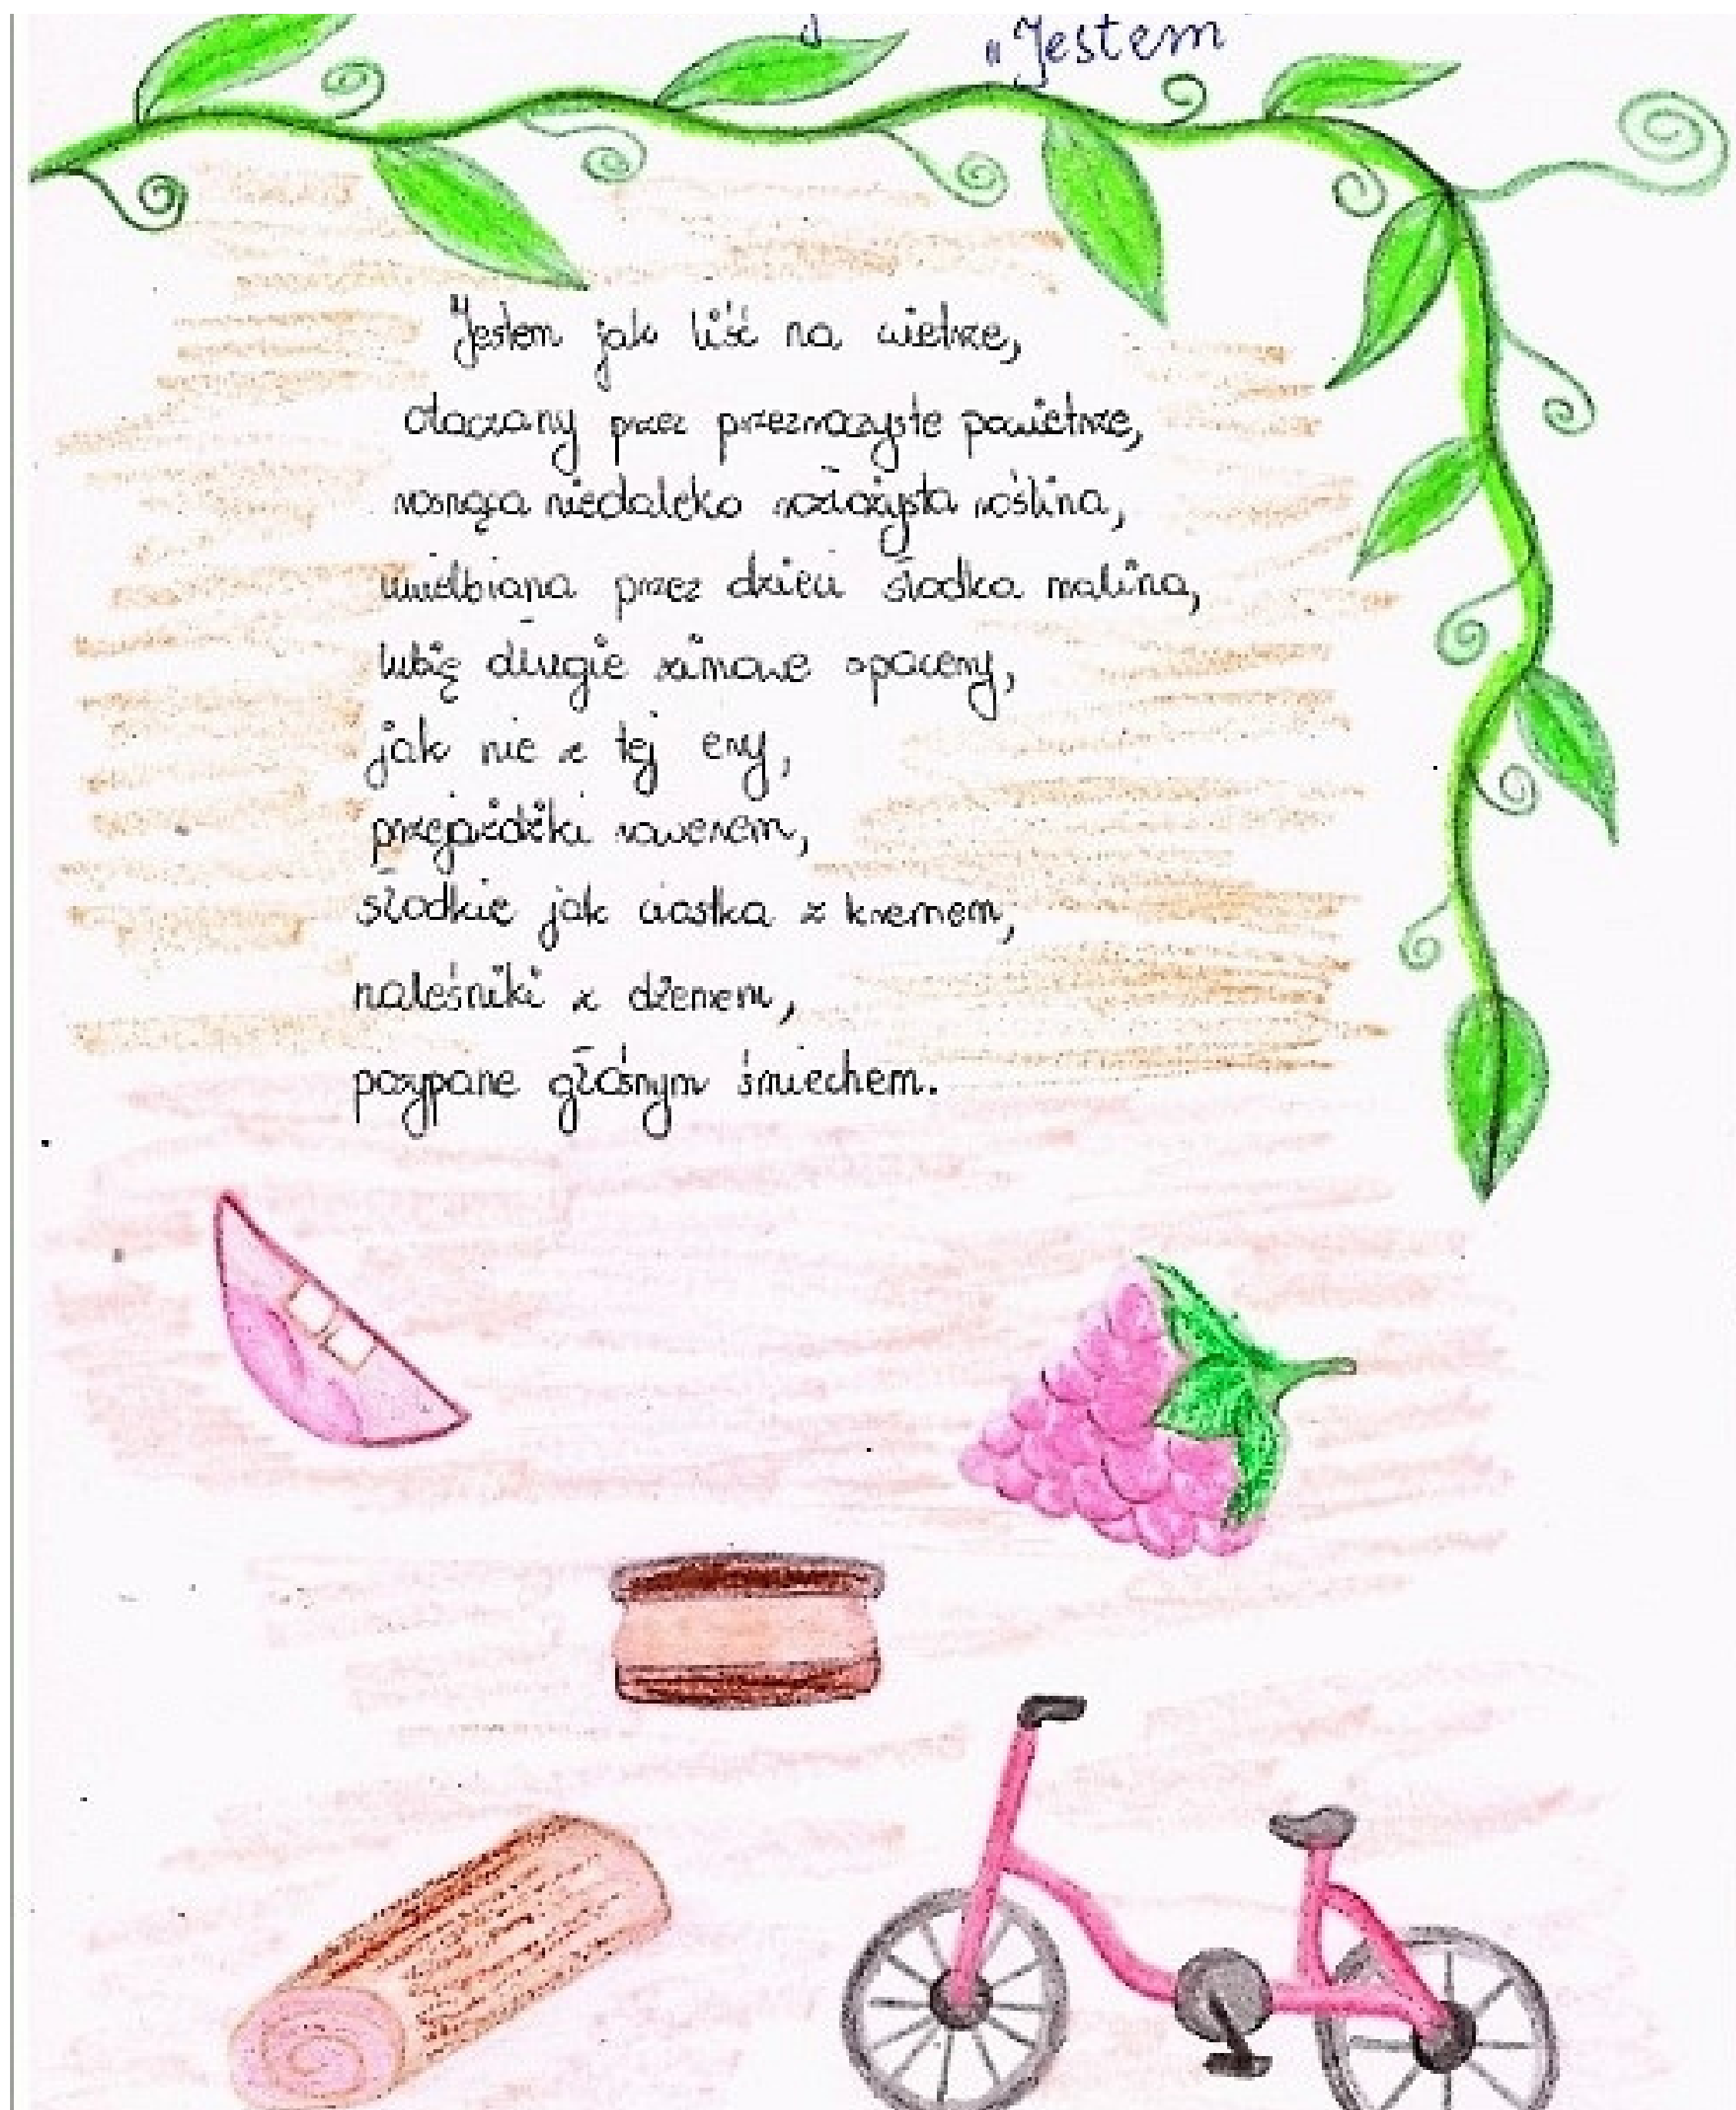 „Jestem
Jestem jak liść na wietrze,
otaczany przez przezroczyste powietrze,
rosnąca niedaleko rozłożysta roślina,
uwielbiana przez dzieci słodka malina,
lubię długie zimowe spacery,
jak nie z tej ery,
przejażdżki rowerem,
słodkie jak ciastka z kremem,
naleśniki z dżemem,
posypane głośnym śmiechem.